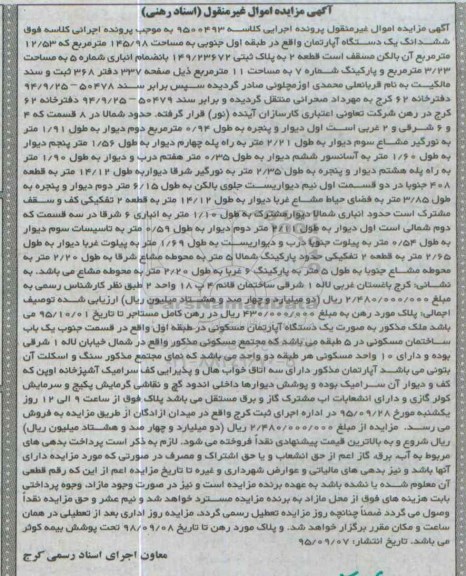 آگهی مزایده اموال غیرمنقول (اسناد رهنی)
آگهی مزایده اموال غیرمنقول پرونده اجرایی کلاسه ۹۵۰۰۴۹۳ به موجب پرونده اجرائی کلاسه فوق
ششدانگ یک دستگاه آپارتمان واقع در طبقه اول جنوبی به مساحت ۱۴۵/۹۸ مترمربع که ۱۲/۵۳
مترمربع آن بالکن مسقف است قطعه ۲ به پلاک ثبتی ۱۴۹/۲۳۶۷۲ بانضمام انباری شماره ۵ به مساحت
۳/۲۳ مترمربع و پارکینگ شماره ۷ به مساحت ۱۱ مترمربع ذیل صفحه ۳۳۷ دفتر ۳۶۸ ثبت و سند
مالکیت به نام قربانعلی محمدی اوزمچلونی صادر گردیده سپس برابر سند ۵۰۴۷۸ – ۹۴/۹/۲۵
دفترخانه ۶۲ کرج به مهرداد صحرانی منتقل گردیده و برابر سند ۵۰۴۷۹–۹۴/۹/۲۵ دفترخانه ۶۲
کرج در رهن شرکت تعاونی اعتباری کارسازان آینده (نور) قرار گرفته. حدود شمالا در ۸ قسمت که ۴
و ۶ شرقی و ۲ غربی است اول دیوار و پنجره به طول ۰/۹۴ مترمربع دوم دیوار به طول ۱/۹۱ متر
به نورگیر مشاع سوم دیوار به طول ۲/۲۱ متر به راه پله چهارم دیوار به طول ۱/۵۶ متر پنجم دیوار
به طول ۱/۶۰ متر به آسانسور ششم دیوار به طول ۰/۳۵ متر هفتم درب و دیوار به طول ۱/۹۰ متر
به راه پله هشتم دیوار و پنجره به طول ۲/۳۵ متر به نورگیر شرقا دیواربه طول ۱۴/۱۲ متر به قطعه
۴۰۸ جنوبا در دو قسمت اول نیم دیواریست جلوی بالکن به طول ۶/۱۵ متر دوم دیوار و پنجره به
طول ۳/۸۵ متر به فضای حیاط مشاع غربا دیوار به طول ۱۴/۱۲ متر به قطعه ۲ تفکیکی کف و سقف
مشترک است حدود انباری شمالا دیوارمشترک به طول ۱/۱۰ متر به انباری ۶ شرقا در سه قسمت که
دوم شمالی است اول دیوار به طول متر دوم دیوار به طول ۰/۵۹ متر به تاسیسات سوم دیوار
به طول ۰/۵۴ متر به پیلوت جنوبا درب و دیواریست به طول ۱/۶۹ متر به پیلوت غربا دیوار به طول
۲/۶۵ متر به قطعه ۲ تفکیکی حدود پارکینگ شمالا ۵ متر به محوطه مشاع شرقا به طول ۲/۲۰ متر به
محوطه مشاع جنوبا به طول ۵ متر به پارکینگ ۶ غربا به طول ۲/۲۰ متر به محوطه مشاع می باشد. به
نشانی: کرج باغستان غربی لاله ۱ شرقی ساختمان قائم ۴ پ ۱۸ واحد ۲ طبق نظر کارشناس رسمی به
مبلغ ۲/۴۸۰/۰۰۰/۰۰۰ ریال (دو میلیارد و چهار صد و هشتاد میلیون ریال) ارزیابی شده توصیف
اجمالی: پلاک مورد رهن به مبلغ ۴۳۰/۰۰۰/۰۰۰ ریال در رهن کامل مستاجر تا تاریخ ۹۵/۱۰/۰۱ می
باشد ملک مذکور به صورت یک دستگاه آپارتمان مسکونی در طبقه اول واقع در قسمت جنوب یک باب
ساختمان مسکونی در ۵ طبقه می باشد که مجتمع مسکونی مذکور واقع در شمال خیابان لاله ۱ شرقی
بوده و دارای ۱۰ واحد مسکونی هر طبقه دو واحد می باشد که نمای مجتمع مذکور سنگ و اسکلت آن
بتونی می باشد آپارتمان مذکور دارای سه اتاق خواب هال و پذیرایی کف سرامیک آشپزخانه اوپن که
کف و دیوار آن سرامیک بوده و پوشش دیوارها داخلی اندود گچ و نقاشی گرمایش پکیج و سرمایش
کولر گازی و دارای انشعابات آب مشترک گاز و برق مستقل می باشد پلاک فوق از ساعت ۹ الی ۱۲ روز
یکشنبه مورخ ۹۵/۰۹/۲۸ در اداره اجرای ثبت کرج واقع در میدان آزادگان از طریق مزایده به فروش
می رسد. مزایده از مبلغ ۲/۴۸۰/۰۰۰/۰۰۰ ریال (دو میلیارد و چهار صد و هشتاد میلیون ریال)
ریال شروع و به بالاترین قیمت پیشنهادی نقداً فروخته می شود. لازم به ذکر است پرداخت بدهی های
مربوط به آب، برق، گاز اعم از حق انشعاب و یا حق اشتراک و مصرف در صورتی که مورد مزایده دارای
آنها باشد و نیز بدهی های مالیاتی و عوارض شهرداری و غیره تا تاریخ مزایده اعم از این که رقم قطعی
آن معلوم شده یا نشده باشد به عهده برنده مزایده است و نیز در صورت وجود مازاد، وجوه پرداختی
بابت هزینه های فوق از محل مازاد به برنده مزایده مسترد خواهد شد و نیم عشر و حق مزایده نقداً
وصول می گردد ضمناً چنانچه روز مزایده تعطیل رسمی گردد، مزایده روز اداری بعد از تعطیلی در همان
ساعت و مکان مقرر برگزار خواهد شد. و پلاک مورد رهن تا تاریخ ۹۸/۰۹/۰۸ تحت پوشش بیمه کوثر
می باشد. تاریخ انتشار: ۹۵/۰۹/۰۷
معاون اجرای اسناد رسمی کرج